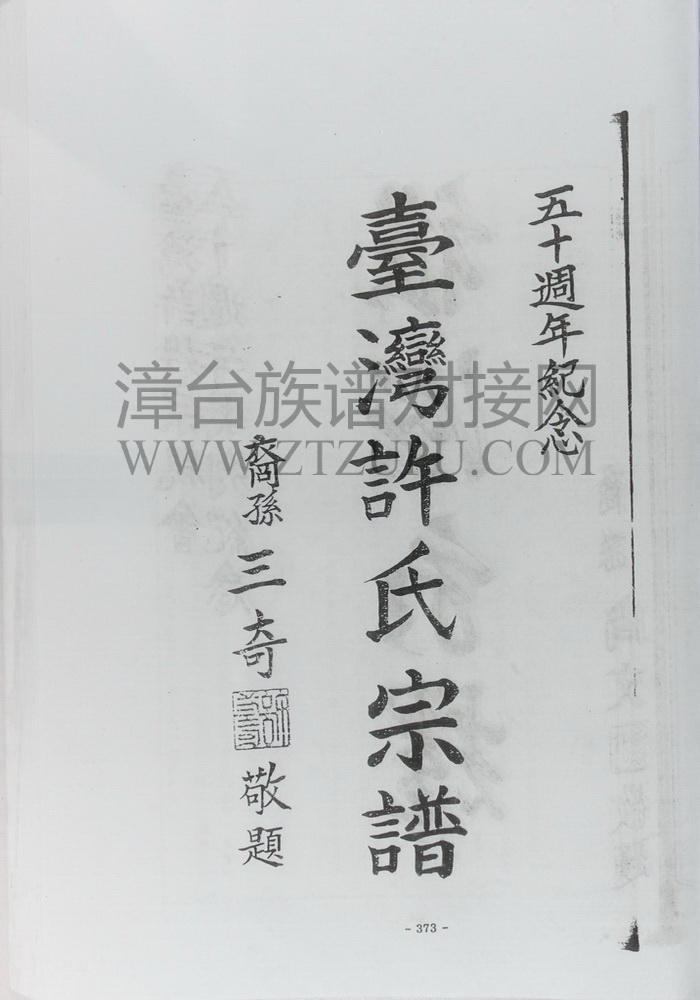 五十週年紀念
臺灣許氏宗譜
裔孫三奇敬題
漳台族谱对接网
WWW.ZTZUPU.COM
- 373 -